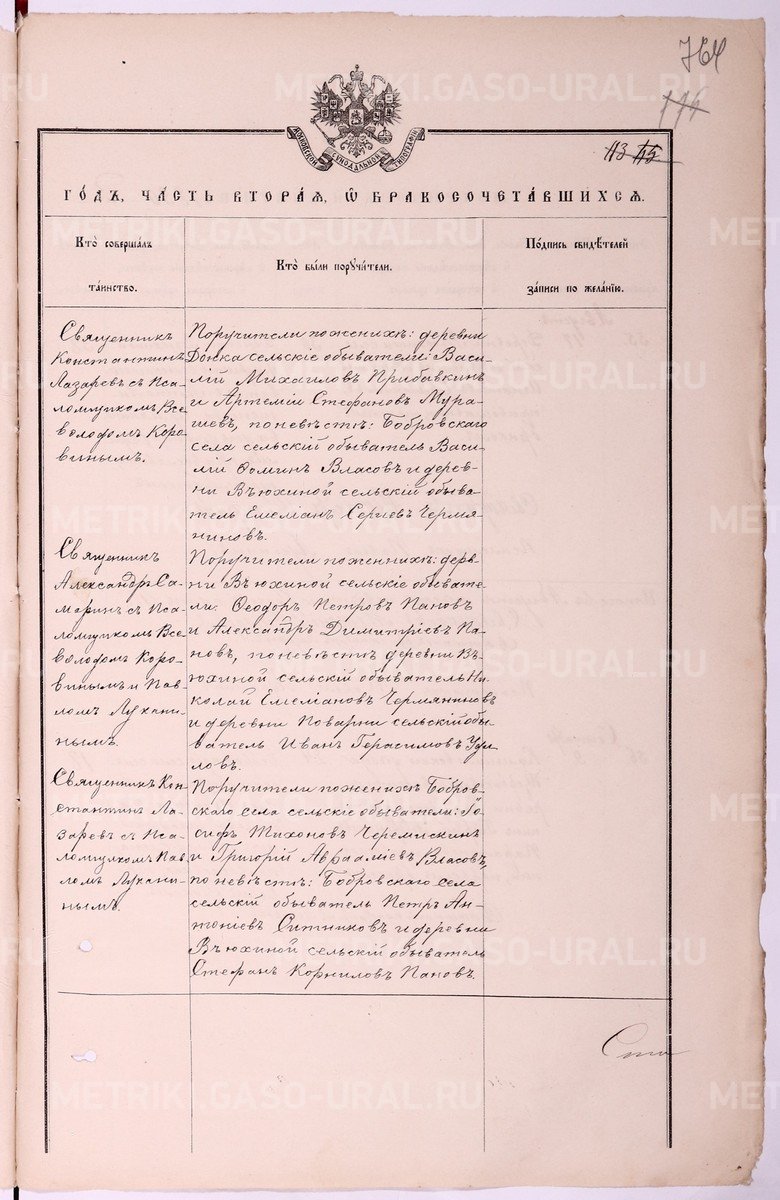 764
116
113 115
МОСКОВСКОЙ СѴНОДАЛЬНОЙ ТИПОГРАФІИ
ГО́ДЪ, ЧА́СТЬ ВТОРА́Я, Ѡ҆ БРАКОСОЧЕТА́ВШИХСЯ.
Кто̀ соверша́лъ
та́инство.
Кто̀ бы́ли порꙋчи́тели.
По́дпись свидѣ́телей
за́писи по жела́нїю.
Священникъ
Константинъ
Лазаревъ съ Пса-
ломщикомъ Все-
володомъ Коро-
винымъ.
Поручители по женихѣ: деревни
Донка сельскіе обыватели: Васи-
лій Михаиловъ Прибавкинъ
и Артемій Стефановъ Мура-
шевъ, по невѣстѣ: Бобровскаго
села сельскій обыватель Васи-
лій Ѳоминъ Власовъ и дерев-
ни Вьюхиной сельскій обыва-
тель Емеліанъ Сергіевъ Чермя-
ниновъ.
Священникъ
Александръ Са-
маринъ съ Пса-
ломщикомъ Все-
володомъ Коро-
винымъ и Пав-
ломъ Лукани-
нымъ.
Поручители по женихѣ: дерев-
ни Вьюхиной сельскіе обывате-
ли: Ѳеодоръ Петровъ Пановъ
и Александръ Димитріевъ Па-
новъ, по невѣстѣ деревни Вь-
юхиной сельскій обыватель Ни-
колай Емеліановъ Чермяниновъ
и деревни Поварни сельскій обы-
ватель Иванъ Герасимовъ
Священникъ Кон-
стантинъ Ла-
заревъ съ Пса-
ломщикомъ Пав-
ломъ Лукани-
нымъ.
Поручители по женихѣ Бобров-
скаго села сельскіе обыватели: Іо-
сифъ Тихоновъ Черемискинъ
и Григорій Авраамісвъ Власовъ,
по невѣстѣ: Бобровскаго села
сельскій обыватель Петръ Ан-
тоніевъ Ситниковъ и деревни
Вьюхиной сельскій обыватель
Стефанъ Корниловъ Пановъ.
METRIKI.GASO-URAL.RU